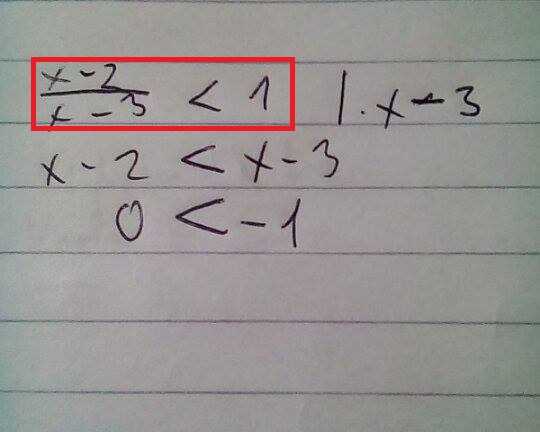 x - 2 / x - 3 < 1 | · x - 3
x - 2 < x - 3
0 < - 1